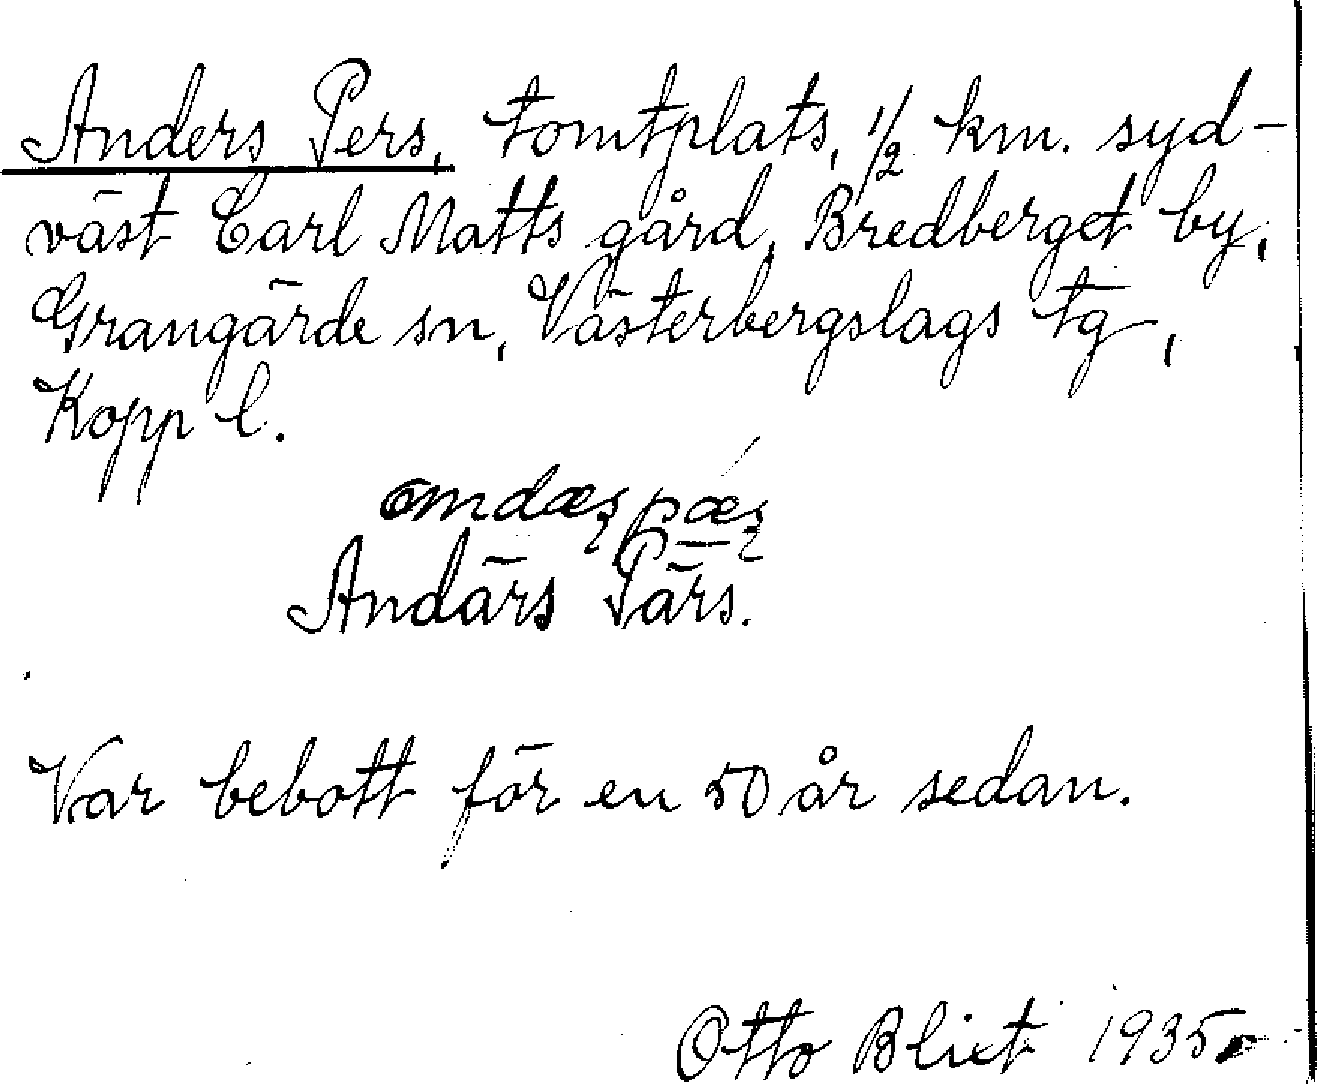 Anders Pers, tomtplats, 1/2 km. syd-
väst Carl Matts gård, Bredberget by,
Grangärde sn, Västerbergslags tg,
Kopp l.
Andärs Pärs.
Var bebott för en 50 år sedan.
Otto Blixt 1935.